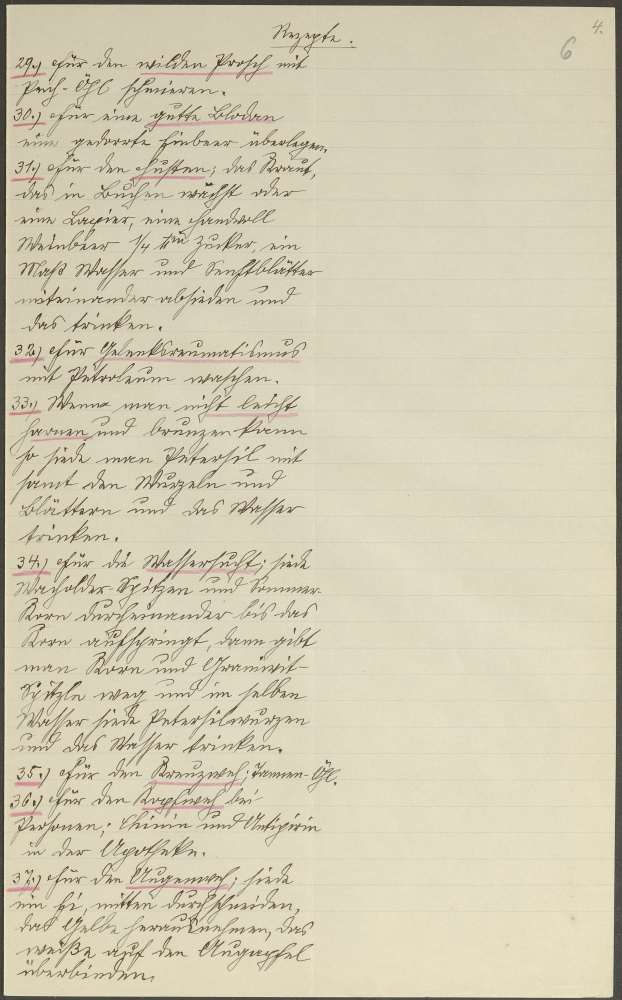 4.
6
Rezepte.
29.) Für den wilden Prosch mit
Pech-Öhl schmieren.
30.) Für eine gutte Blodan
eine gedorrte Feinbeer überlegen.
31.) Für den Husten; das Kraut,
das in Buchen wächst oder
eine Handvoll
Weinbeer 1/4 Zucker, ein
Maß Wasser und Senftblätter
miteinander absieden und
das trinken.
32.) Für Gelenksreumatismus
mit Petroleum waschen.
33.) Wenn man nicht leicht
harnen und brunzen kann
so siede man Petersil mit
samt den Wurzeln und
Blättern und das Wasser
trinken.
34.) Für die Wassersucht; siede
Wacholder-Spitzen und Sommer-
Korn durcheinander bis das
Korn aufspringt, dann gibt
man Korn und Granwit-
Spitzln weg und im selben
Wasser siede Petersilwurzen
und das Wasser trinken.
35.) Für den Kreuzweh; Tannen-Öhl.
36.) Für den Kopfweh bei
Personen; Chinin und Antipirin
in der Apotheke.
37.) Für den Augenweh; siede
ein Ei, mitten durchschneiden,
das Gelbe herausnehmen, das
weiße auf den Augapfel
überbinden.